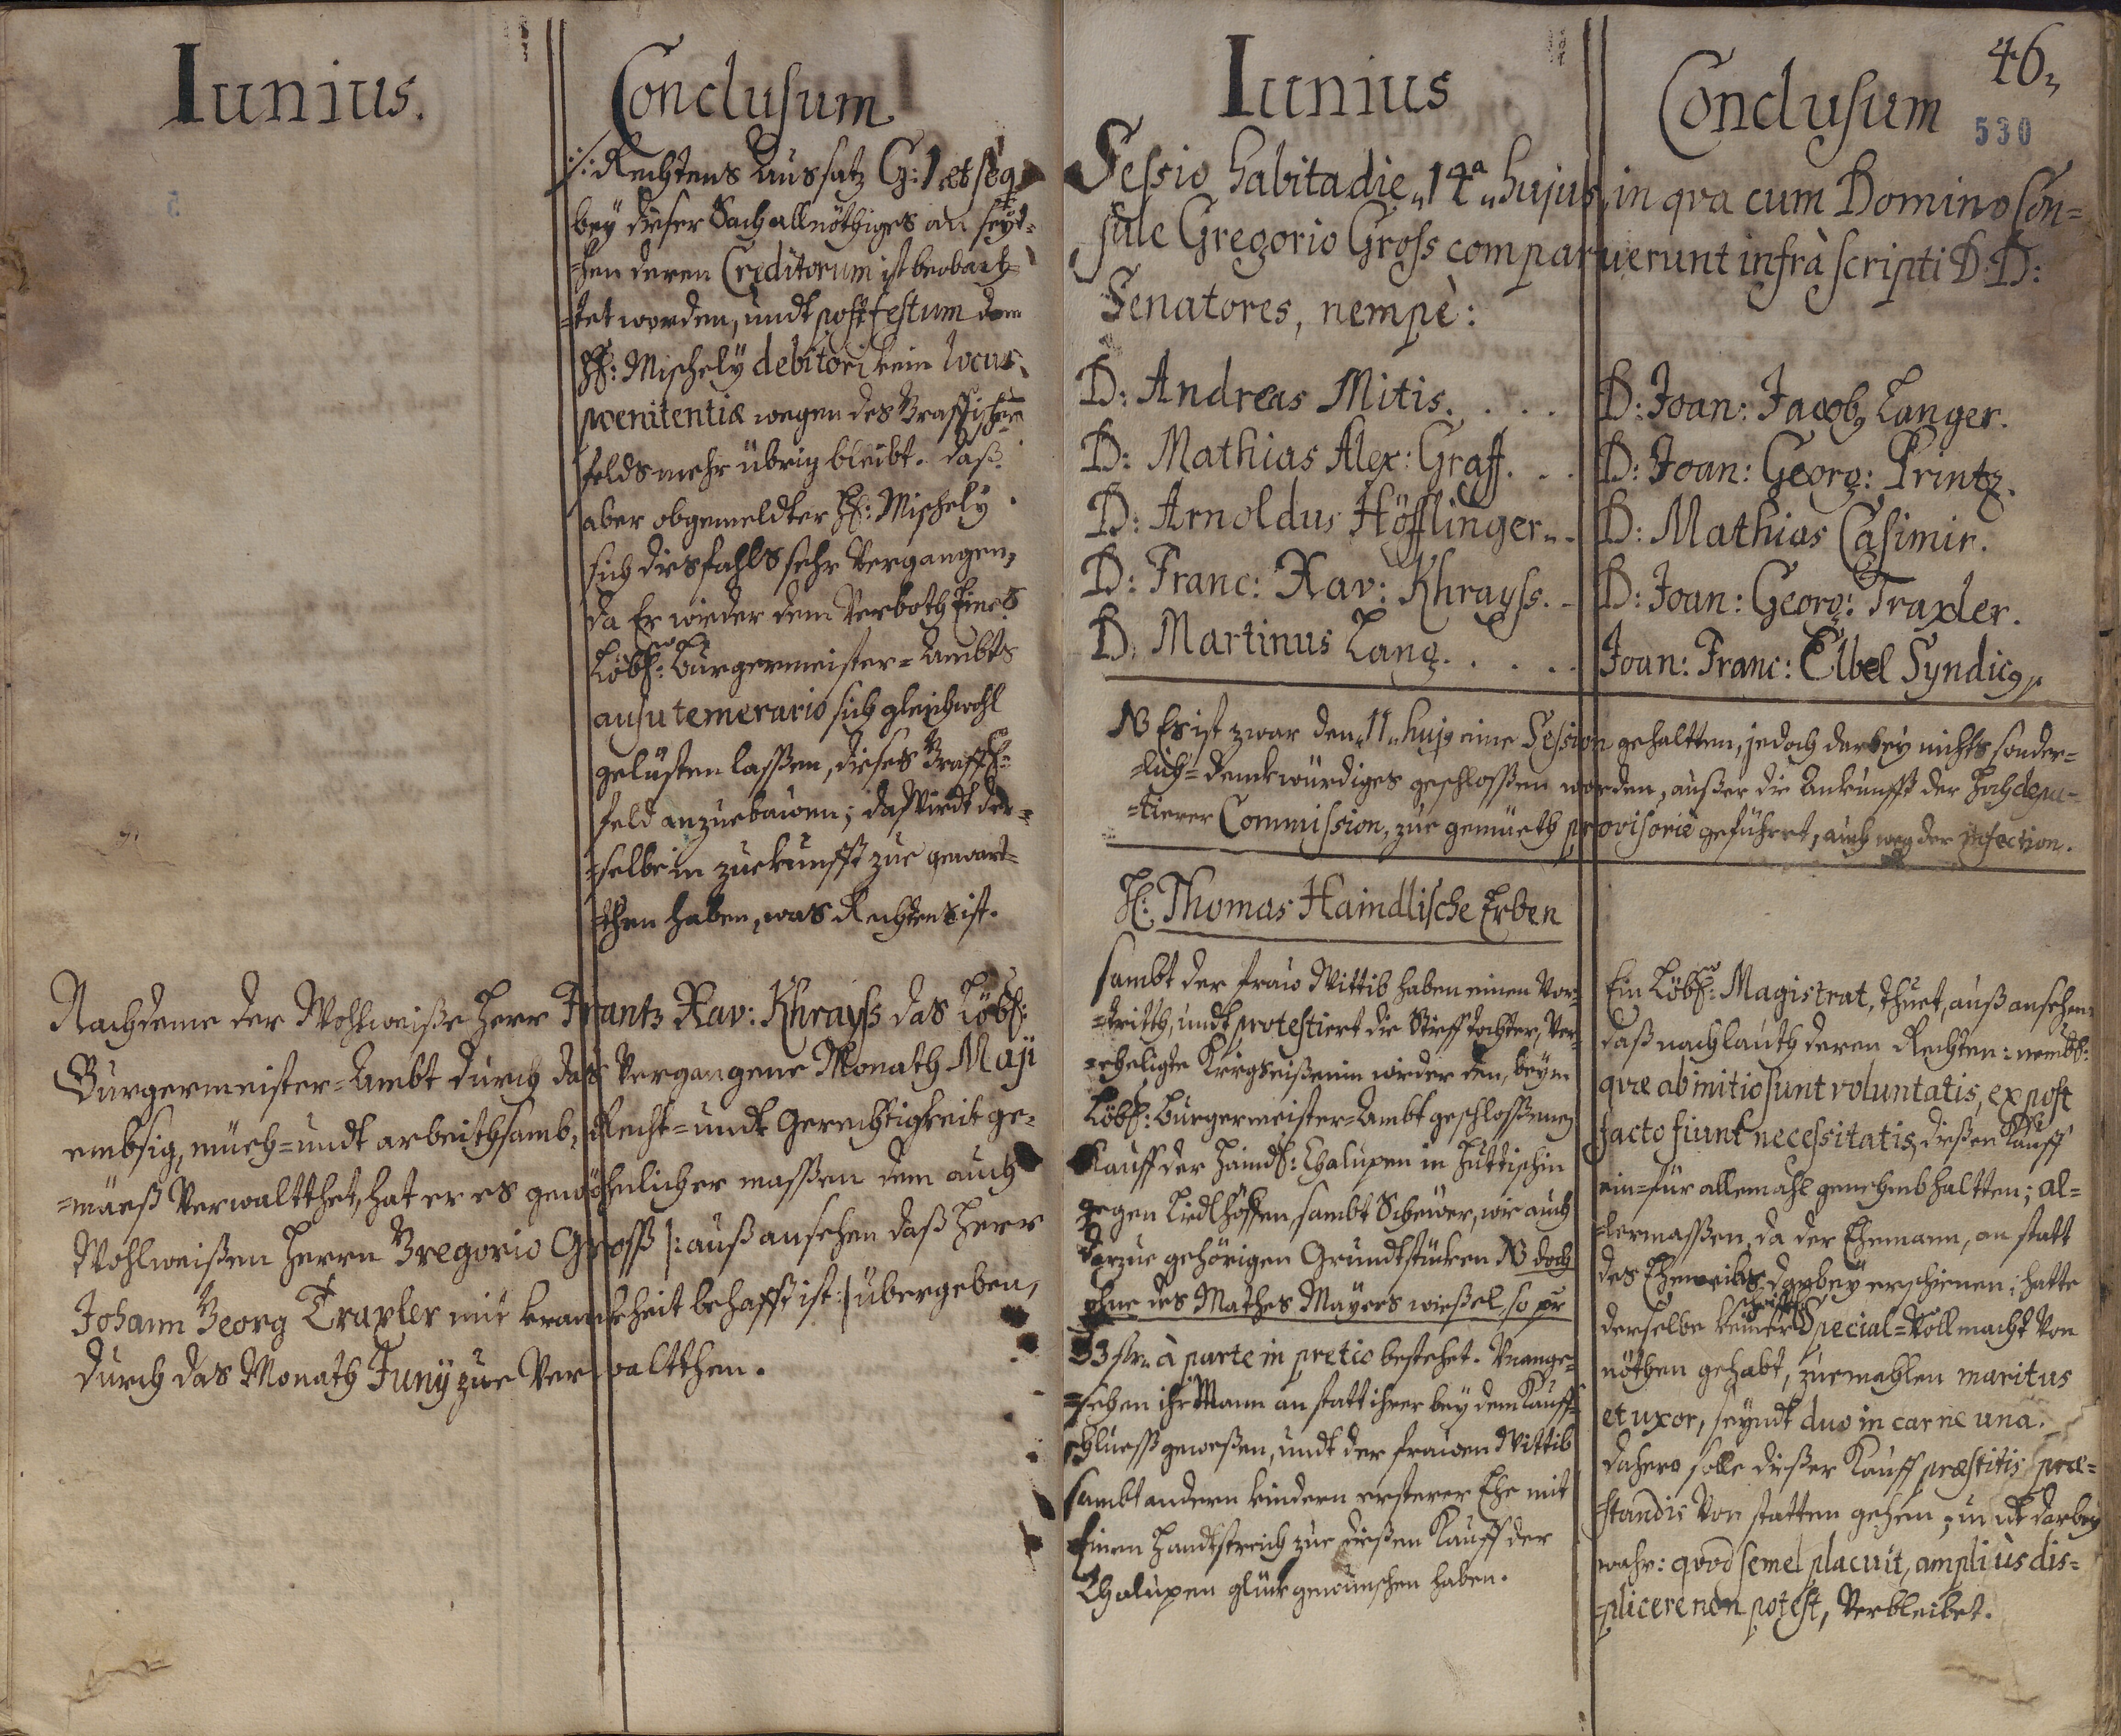 Iunius.
Conclusum
:/: Rechtens Aussatz G: 1 et seq
bey dieser Sach all nöthiges an seyt=
=hen deren Creditorum ist beobach=
=tet worden, undt post festum dem
H: Mischely debitori kein locus
poenitentiæ wegen des Brassischen
felds mehr übrig bleibt. daß
aber obgemeldter H: Mischely
sich disfahls sehr Vergangen,
da Er wieder dem Verboth Eines
Löbl: Burgermeister=Ambts
ausu temerario sich gleichwohl
gelüsten lassen, dieses Brass:
feld anzuebauen; das Wirdt der=
=selbe in zuekunfft zue gewart=
=then haben, was Rechtens ist.
Nachdeme der Wohlweiße Herr Frantz Xav: Khrayss das Löbl:
Burgermeister=Ambt durch das Vergangene Monath Maji
embsig, müeh= undt arbeithsamb, Recht= undt Gerechtigkeit ge=
=mäeß Verwaltthet, hat er es gewöhnlicher massen dem auch
Wohlweißen Herrn Gregorio Gross |: auß ansehen daß Herr
Johann Georg Traxler mit krankheit behafft ist :| übergeben,
durch das Monath Juny zue Verwaltthen.
Iunius
Conclusum
46,
530
Sessio habita die „14ª„ hujus, in qva cum Domino Con=
sule Gregorio Gross comparuerunt infrà scripti D:D:
Senatores, nempè:
D: Andreas Mitis. . . .
D: Joan: Jacob, Langer.
D: Mathias Alex: Graff. . .
D: Joan: Georg: Printz.
D: Arnoldus Höfflinger. .
D: Mathias Casimir.
D: Franc: Xav: Khrayss. .
D: Joan: Georg: Traxler.
D: Martinus Lang. . . . .
Joan: Franc: Elbel Syndicg
NB Es ist zwar den „11„ huj9 eine Session gehaltten, jedoch darbey nichts sonder=
=lich= denckwürdiges geschlossen worden, außer die Ankunfft der Hochdepu=
=tierer Commission, zue gemüeth provisoriè geführet, auch weg der infection.
H: Thomas Haindlische Erben
sambt der fraw Wittib haben einen Vor=
=tritth, undt protestiert die Stiefftochter, Ver=
=eheligte Kriegseißenin wieder den, beym
Löbl: Burgermeister=Ambt geschlossenen
Kauff der Haindl: Chalupen in Huttischin
gegen Liedlhöffen, sambt Scheüer, wie auch
darzue gehörigen Grundtstücken NB doch
ohne des Mathes Mayers wießel, so pr
33 fl: à parte in pretio bestehet. Unange=
=sehen ihr Mann an statt ihrer bey dem Kauff=
schlueß geweßen, undt der frauen Wittib
sambt andern kindern ersterer Ehe mit
Einem Handtstreich zue dießen Kauff der
Chalupen glück gewunschen haben.
Ein Löbl: Magistrat, thuet, auß ansehen
daß nachlauth deren Rechten: nembl:
qvæ ab initio sunt voluntatis, ex post
facto fiunt necessitatis, dießen Kauff
ein= für allemahl genehmb haltten; al=
=lermassen, da der Ehemann, an statt
des Eheweibs darbey erschienen; hatte
derselbe keiner schrifftl: Special=Vollmacht Von
nöthen gehabt, zuemahlen maritus
et uxor, seyndt duo in carne una.
Dahero solle dießer Kauff præstitis præ=
standis Von statten gehen, undt darbey
wahr: qvod semel placuit, ampliùs dis=
=plicere non potest, Verbleibet.